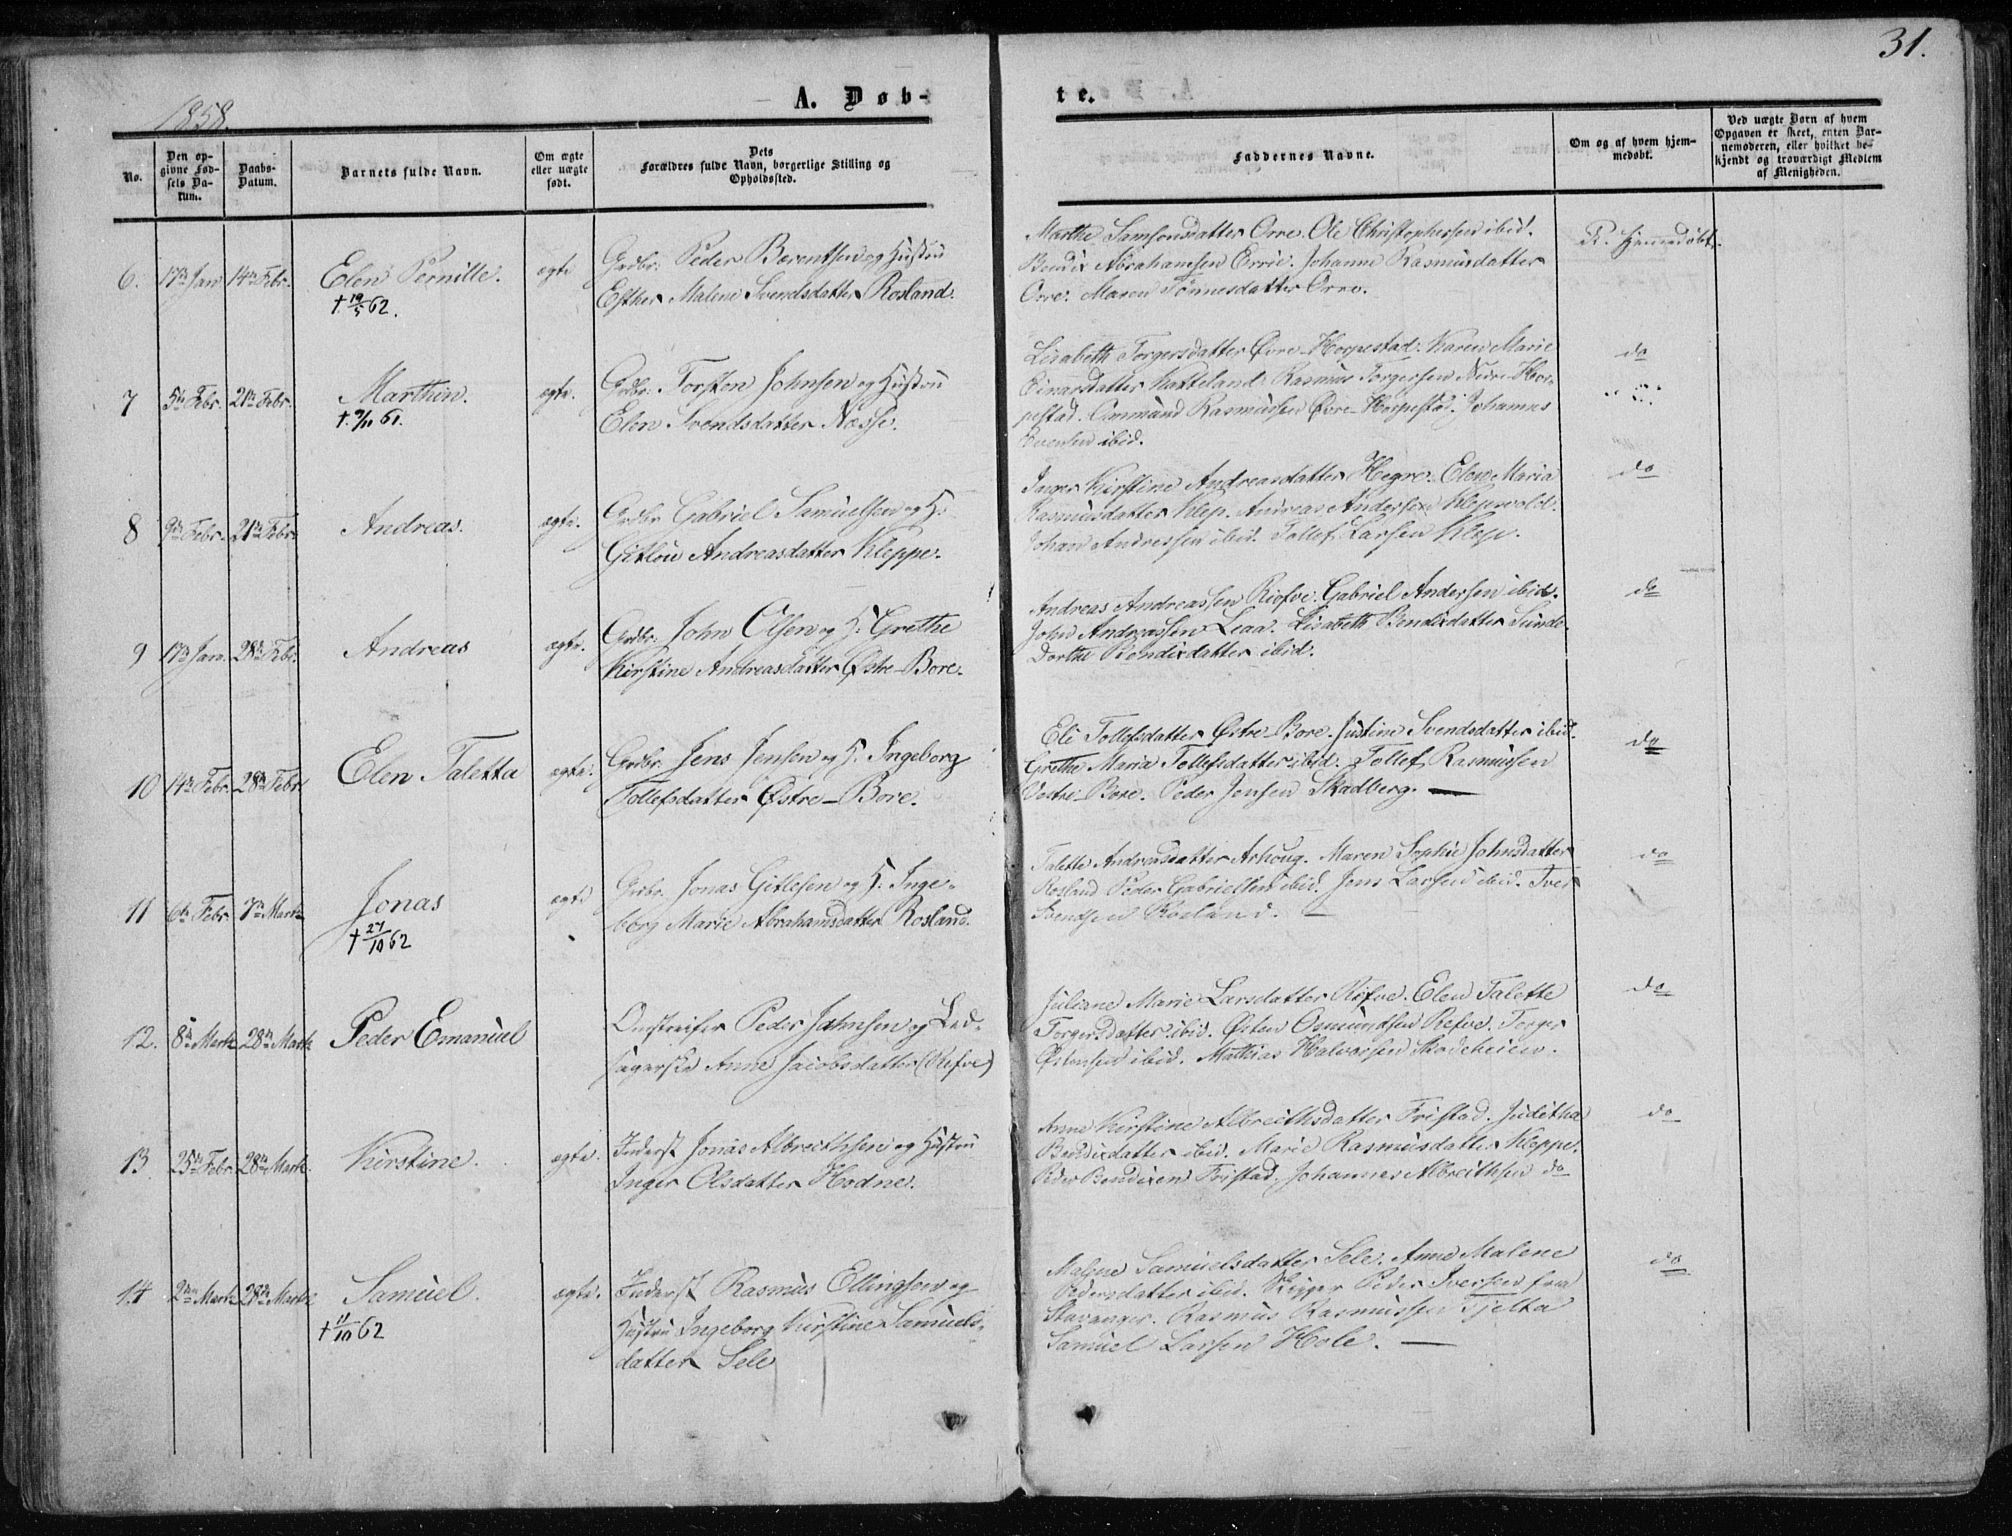 31.
1858.
A. Døb-
te.
No.
Den op-
givne Fød-
sels Da-
tum.
Daabs-
Datum.
Barnets fulde Navn.
Om ægte
eller uægte
født.
Dets
Forældres fulde Navn, borgerlige Stilling og
Opholdssted.
Faddernes Navne.
Om og af hvem hjem-
medøbt.
Ved uægte Børn af hvem
Opgaven er skeet, enten Bar-
nemoderen, eller hvilket be-
kjendt og troværdigt Medlem
af Menigheden.
6. 17de Jan 14de Febr. Elen Pernille. ægte
† 19/5 62.
Grdbr: Peder Berentsen og Hustru
Esther Malene Svendsdatter Rosland.
Marthe Samsonsdatter Orre. Ole Christophersen ibid.
Bendix Abrahamsen Errie. Johanne Rasmusdatter
Orre. Maren Tønnesdatter Orre.
R. Hjemmedøbt.
7 5te Febr. 21de Febr. Marthin. ægte.
† 9/11 61.
Grdbr: Torsten Johnsen og Hustru
Elen Svendsdatter Næsse.
Lisabeth Torgersdatter Øvre-Horpestad. Karen Marie
Einarsdatter Katteland. Rasmus Torgersen Nedre Hor-
pestad. Ommund Rasmussen Øvre-Horpestad. Johannes
Svensen ibid.
do
8 9de Febr. 21de Febr. Andreas. ægte.
Grdbr Gabriel Samuelsen og H:
Gitlou Andreasdatter Kleppe.
Inger Kirstine Andreasdatter Hegre. Elen Maria
Rasmusdatter Klep. Andreas Andersen Klepvold.
Johan Andressen ibid. Tollef Larsen Klep.
do
9 17de Jan. 28de Febr. Andreas ægte.
Grdbr: John Olsen og H: Grethe
Kirstine Andreasdatter Østre-Bore.
Andreas Andreassen Riefve. Gabriel Andersen ibid.
John Andreassen Leaa. Lisabeth Bendixdatter Sunde.
Dorthe Bendixdatter ibid.
do
10 14de Febr. 28de Febr. Elen Taletta ægte.
Grdbr. Jens Jensen og H. Ingeborg
Tollefsdatter Østre-Bore.
Eli Tollefsdatter Østre-Bore. Justine Svendsdatter ibid.
Grethe Maria Tollefsdatter ibid. Tollef Rasmussen
Vestre-Bore. Peder Jensen Skadberg. —
do
11 6te Febr. 7de Marts Jonas ægte
† 27/10 62
Grdbr. Jonas Gitlesen og H. Inge-
borg Marie Abrahamsdatter Rosland.
Talette Andreasdatter Arhoug. Maren Sophie Johnsdatter
Rosland Peder Gabrielsen ibid. Jens Larsen ibid. Iver
Svendsen Rosland. —
do
12. 8de Marts 28de Marts Peder Emanuel
Omstreifer Peder Johnsen og Led-
sagerske Anne Jacobsdatter (Refve)
Juliane Marie Larsdatter Refve. Elen Talette
Torgersdatter ibid. Østen Osmundsen Refve. Torger
Østensen ibid. Mathias Halvorsen Skadeheien.
do
13 25de Febr. 28de Marts. Kirstine. ægte.
Inderst Jonas Albreithsen og Hustru
Inger Olsdatter Hodne.
Anne Kirstine Albreithsdatter Fristad. Juditha
Bendixdatter ibid. Marie Rasmusdatter Kleppe.
Peder Bendixen Fristad. Johannes Albreithsen do
do
14 2den Marts 28de Marts Samuel. ægte.
† 11/10 62
Inderst Rasmus Ellingsen og
Hustru Ingeborg Kirstine Samuels-
datter Sele
Malene Samuelsdatter Sele. Anne Malene
Pedersdatter ibid. Skipper Peder Iversen fra
Stavanger. Rasmus Rasmussen Tjelta
Samuel Larsen Hole. —
do